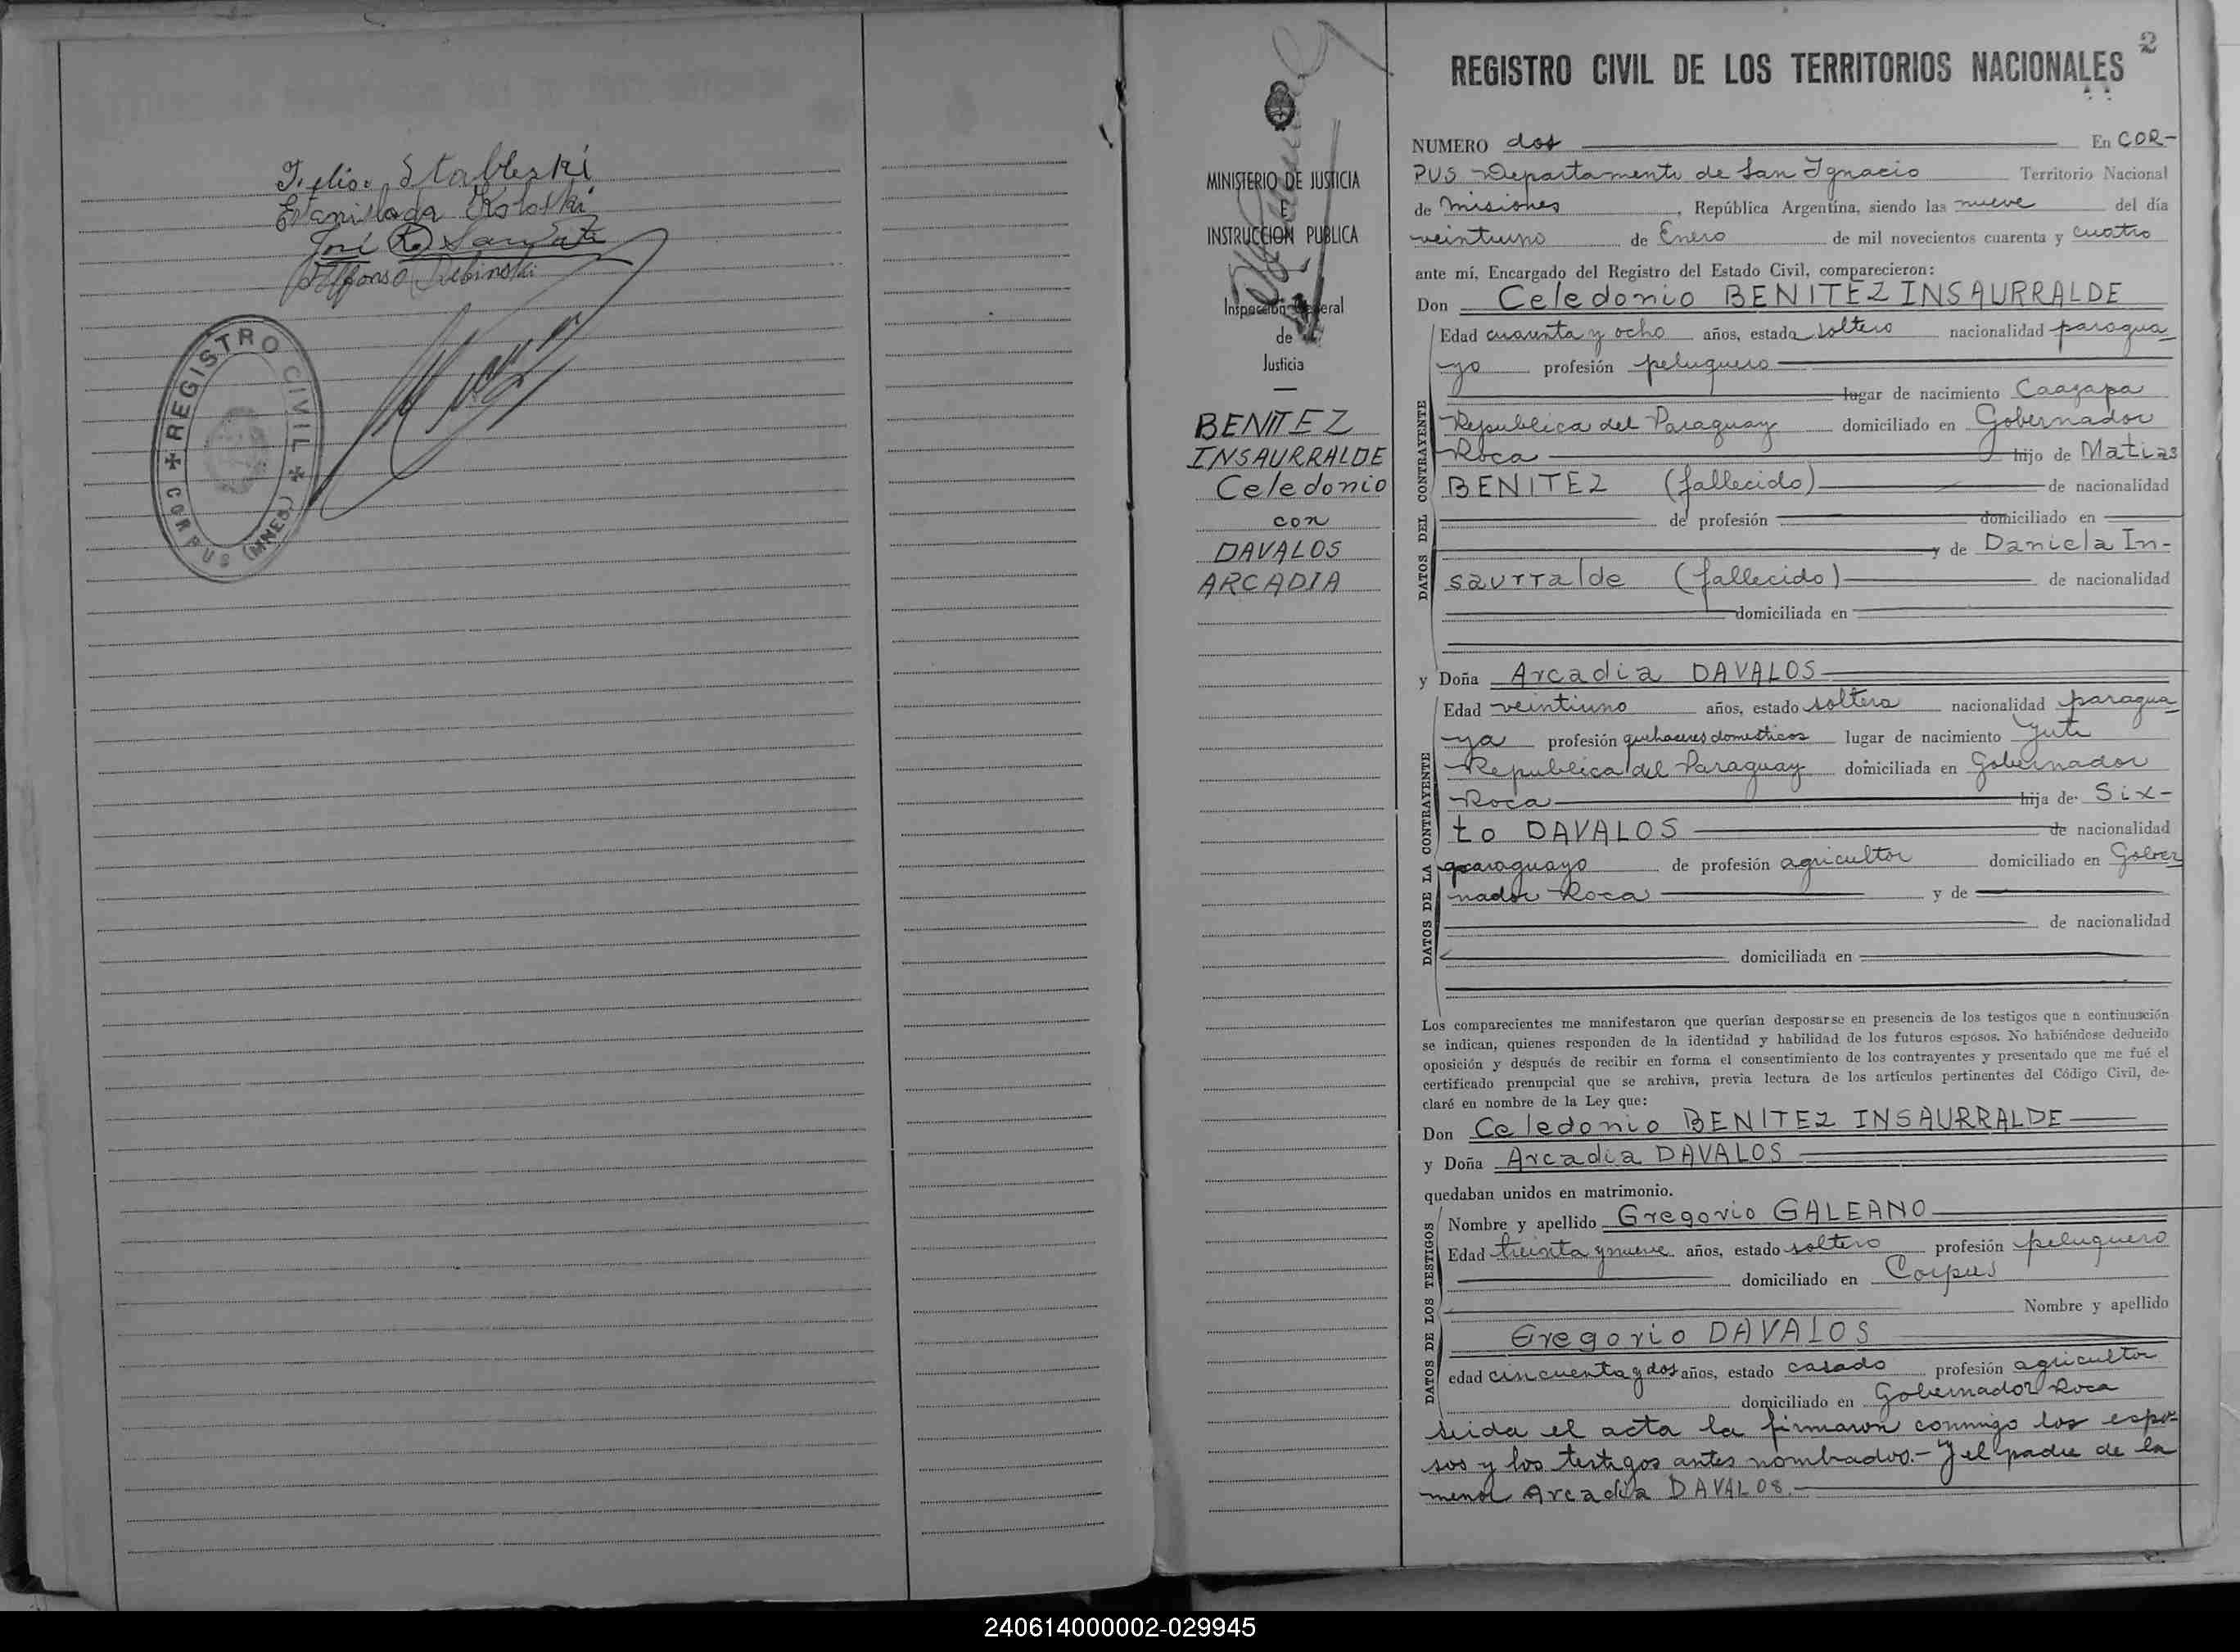 Julio Stableski
Estanislada Koloski
José R. San
Alfonso
REGISTRO CIVIL
CORPUS (MNES)
MINISTERIO DE JUSTICIA
E
INSTRUCCION PUBLICA
Inspección General
de
Justicia
BENITEZ
INSAURRALDE
Celedonio
con
DAVALOS
ARCADIA
2
REGISTRO CIVIL DE LOS TERRITORIOS NACIONALES
NUMERO dos En COR-
PUS Departamento de San Ignacio Territorio Nacional
de Misiones, República Argentina, siendo las nueve del día
veintiuno de Enero de mil novecientos cuarenta y cuatro
ante mí, Encargado del Registro del Estado Civil, comparecieron:
Don Celedonio BENITEZ INSAURRALDE
DATOS DEL CONTRAYENTE
Edad cuarenta y ocho años, estado soltero nacionalidad paragua
yo profesión peluquero
lugar de nacimiento Caazapa
Republica del Paraguay domiciliado en Gobernador
Roca hijo de Matias
BENITEZ (fallecido) de nacionalidad
de profesión domiciliado en
y de Daniela In-
saurralde (fallecido) de nacionalidad
domiciliada en
y Doña Arcadia DAVALOS
DATOS DE LA CONTRAYENTE
Edad veintiuno años, estado soltera nacionalidad paragua
ya profesión quehaceres domesticos lugar de nacimiento Yuti
Republica del Paraguay domiciliada en Gobernador
Roca hija de Six-
to DAVALOS de nacionalidad
paraguayo de profesión agricultor domiciliado en Gober
nador Roca y de
de nacionalidad
domiciliada en
Los comparecientes me manifestaron que querían desposarse en presencia de los testigos que a continuación
se indican, quienes responden de la identidad y habilidad de los futuros esposos. No habiéndose deducido
oposición y después de recibir en forma el consentimiento de los contrayentes y presentado que me fué el
certificado prenupcial que se archiva, previa lectura de los artículos pertinentes del Código Civil, de-
claré en nombre de la Ley que:
Don Celedonio BENITEZ INSAURRALDE
y Doña Arcadia DAVALOS
quedaban unidos en matrimonio.
DATOS DE LOS TESTIGOS
Nombre y apellido Gregorio GALEANO
Edad treinta y nueve años, estado soltero profesión peluquero
domiciliado en Corpus
Nombre y apellido
Gregorio DAVALOS
edad cincuenta y dos años, estado casado profesión agricultor
domiciliado en Gobernador Roca
Leida el acta la firmaron conmigo los espo-
sos y los testigos antes nombrados.- Y el padre de la
menor Arcadia DAVALOS.
240614000002-029945